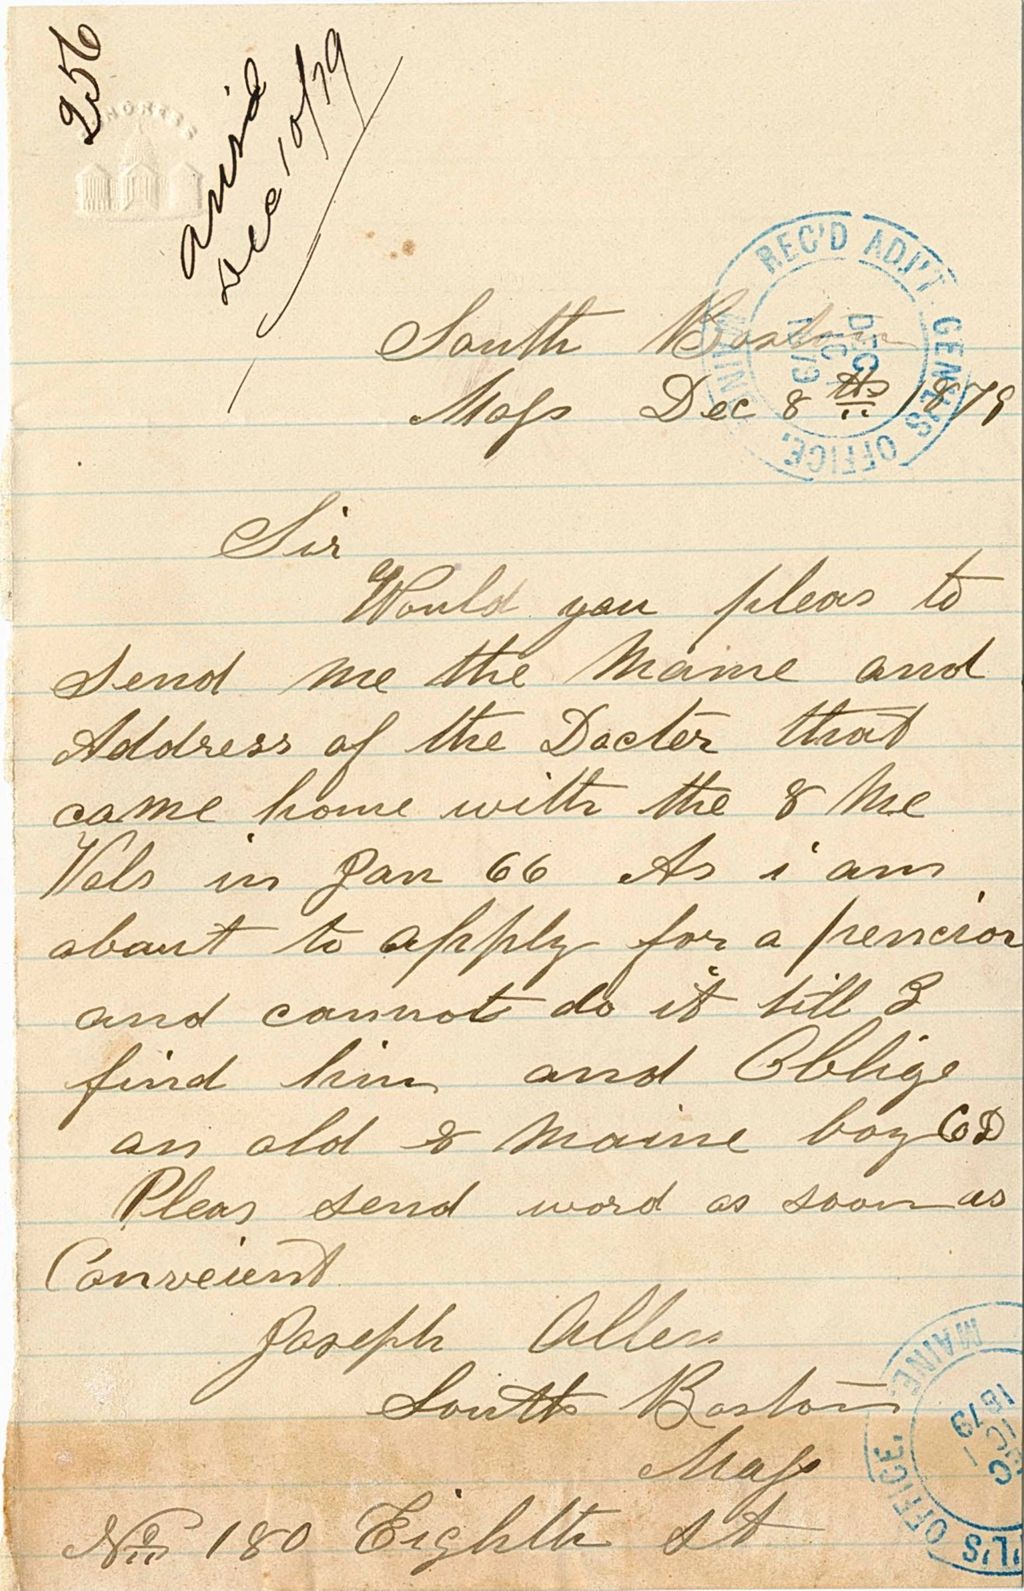 256
ansd
Dec 10/79
CONGRESS
REC'D ADJ'T GENL'S OFFICE.
MAINE
DEC
1879
South Boston
Mass Dec 8th 1879
Sir
Would you pleas to
Send me the Name and
Address of the Docter that
came home with the 8 Me
Vols in Jan 66 As i am
about to apply for a pencion
and cannot do it till I
find him and Oblige
an old 8 Maine boy Co D
Pleas send word as soon as
Conveient
Joseph Allen
South Boston
Mass
No 180 Eighth St
MAINE
1879
L'S OFFICE.